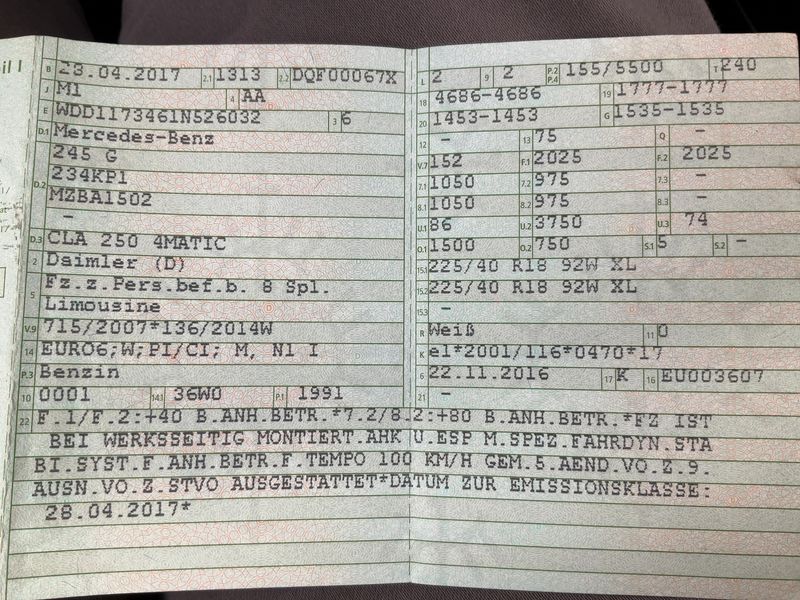 il I
B 28.04.2017 2.1 1313 2.2 DQF00067X
J M1 4 AA
E WDD1173461N526032 3 6
D.1 Mercedes-Benz
245 G
D.2 234KP1
MZBA1502
-
D.3 CLA 250 4MATIC
2 Daimler (D)
5 Fz.z.Pers.bef.b. 8 Spl.
Limousine
V.9 715/2007*136/2014W
14 EURO6;W;PI/CI; M, N1 I
P.3 Benzin
10 0001 14.1 36W0 P.1 1991
L 2 9 2 P.2 P.4 155/5500 T 240
18 4686-4686 19 1777-1777
20 1453-1453 G 1535-1535
12 - 13 75 Q -
V.7 152 F.1 2025 F.2 2025
7.1 1050 7.2 975 7.3 -
8.1 1050 8.2 975 8.3 -
U.1 86 U.2 3750 U.3 74
O.1 1500 O.2 750 S.1 5 S.2 -
15.1 225/40 R18 92W XL
15.2 225/40 R18 92W XL
15.3 -
R Weiß 11 0
K e1*2001/116*0470*17
6 22.11.2016 17 K 16 EU003607
21 -
22 F.1/F.2:+40 B.ANH.BETR.*7.2/8.2:+80 B.ANH.BETR.*FZ IST
BEI WERKSSEITIG MONTIERT.AHK U.ESP M.SPEZ.FAHRDYN.STA
BI.SYST.F.ANH.BETR.F.TEMPO 100 KM/H GEM.5.AEND.VO.Z.9.
AUSN.VO.Z.STVO AUSGESTATTET*DATUM ZUR EMISSIONSKLASSE:
28.04.2017*